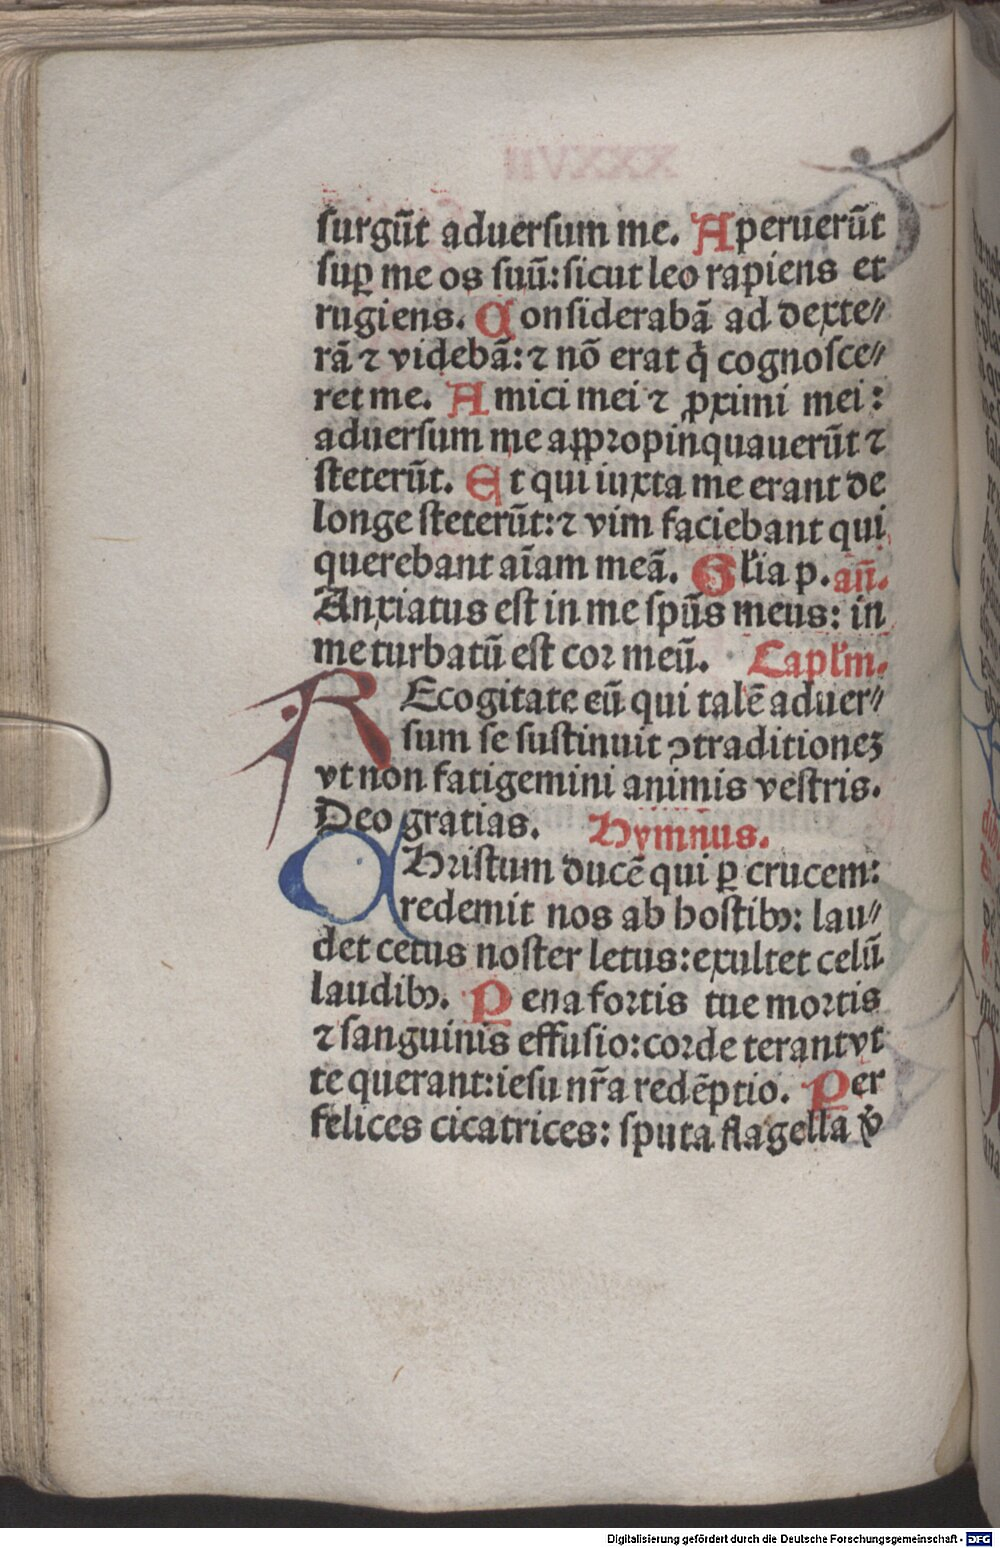 surgūt aduersum me. Aperuerūt
suꝑ me os suū: sicut leo rapiens et
rugiens. Considerabā ad dexte⸗
rā ⁊ videbā: ⁊ nō erat q̇ cognosce⸗
ret me. Amici mei ⁊ ꝓximi mei:
aduersum me appropinquauerūt ⁊
steterūt. Et qui iuxta me erant de
longe steterūt: ⁊ vim faciebant qui
querebant aīam meā. Gl'ia p. añ.
Anxiatus est in me spūs meus: in
me turbatū est cor meū. Capl'm.
REcogitate eū qui talē aduer⸗
sum se sustinuit ꝯtraditionez
vt non fatigemini animis vestris.
Deo gratias. Hymnus.
CHristum ducē qui ꝑ crucem:
redemit nos ab hostibꝰ: lau⸗
det cetus noster letus: exultet celū
laudibꝰ. Pena fortis tue mortis
⁊ sanguinis effusio: corde terant vt
te querant: iesu nr̄a redēptio. Per
felices cicatrices: sputa flagella v̇
Digitalisierung gefördert durch die Deutsche Forschungsgemeinschaft - DFG